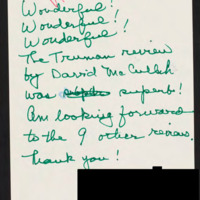 Wonderful!
Wonderful!
Wonderful!
The Truman review
by David McCulloh
was superb!
Am looking forward
to the 9 other review.
Thank you!